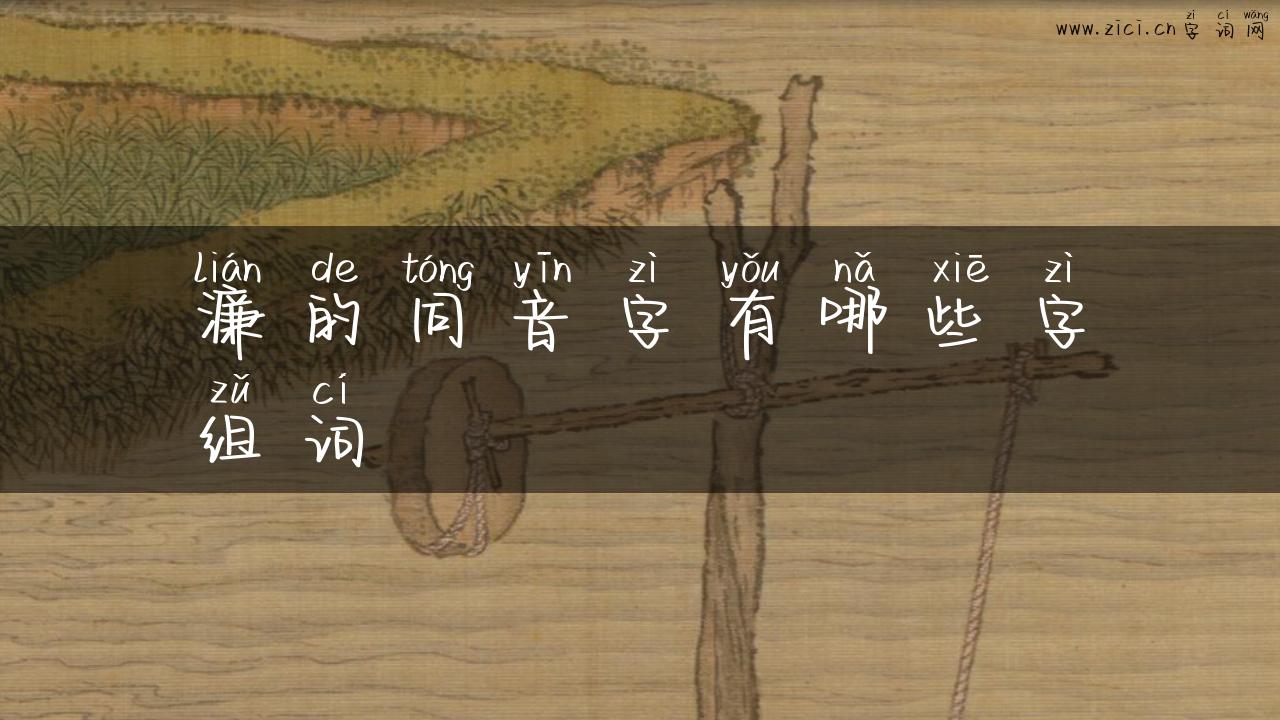 zì cí wǎng
www.zici.cn 字词网
lián de tóng yīn zì yǒu nǎ xiē zì
濂的同音字有哪些字
zǔ cí
组词